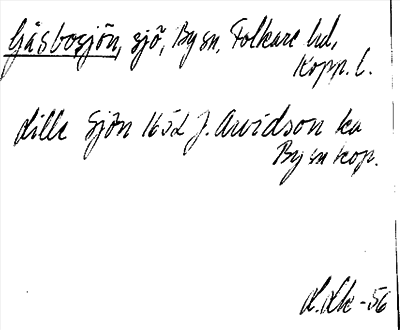 Gåsbosjön, sjö, By sn, Folkare hd,
Kopp. l.
Lille Sjön 1652 J. Arvidson ka
By sn kop.
-56